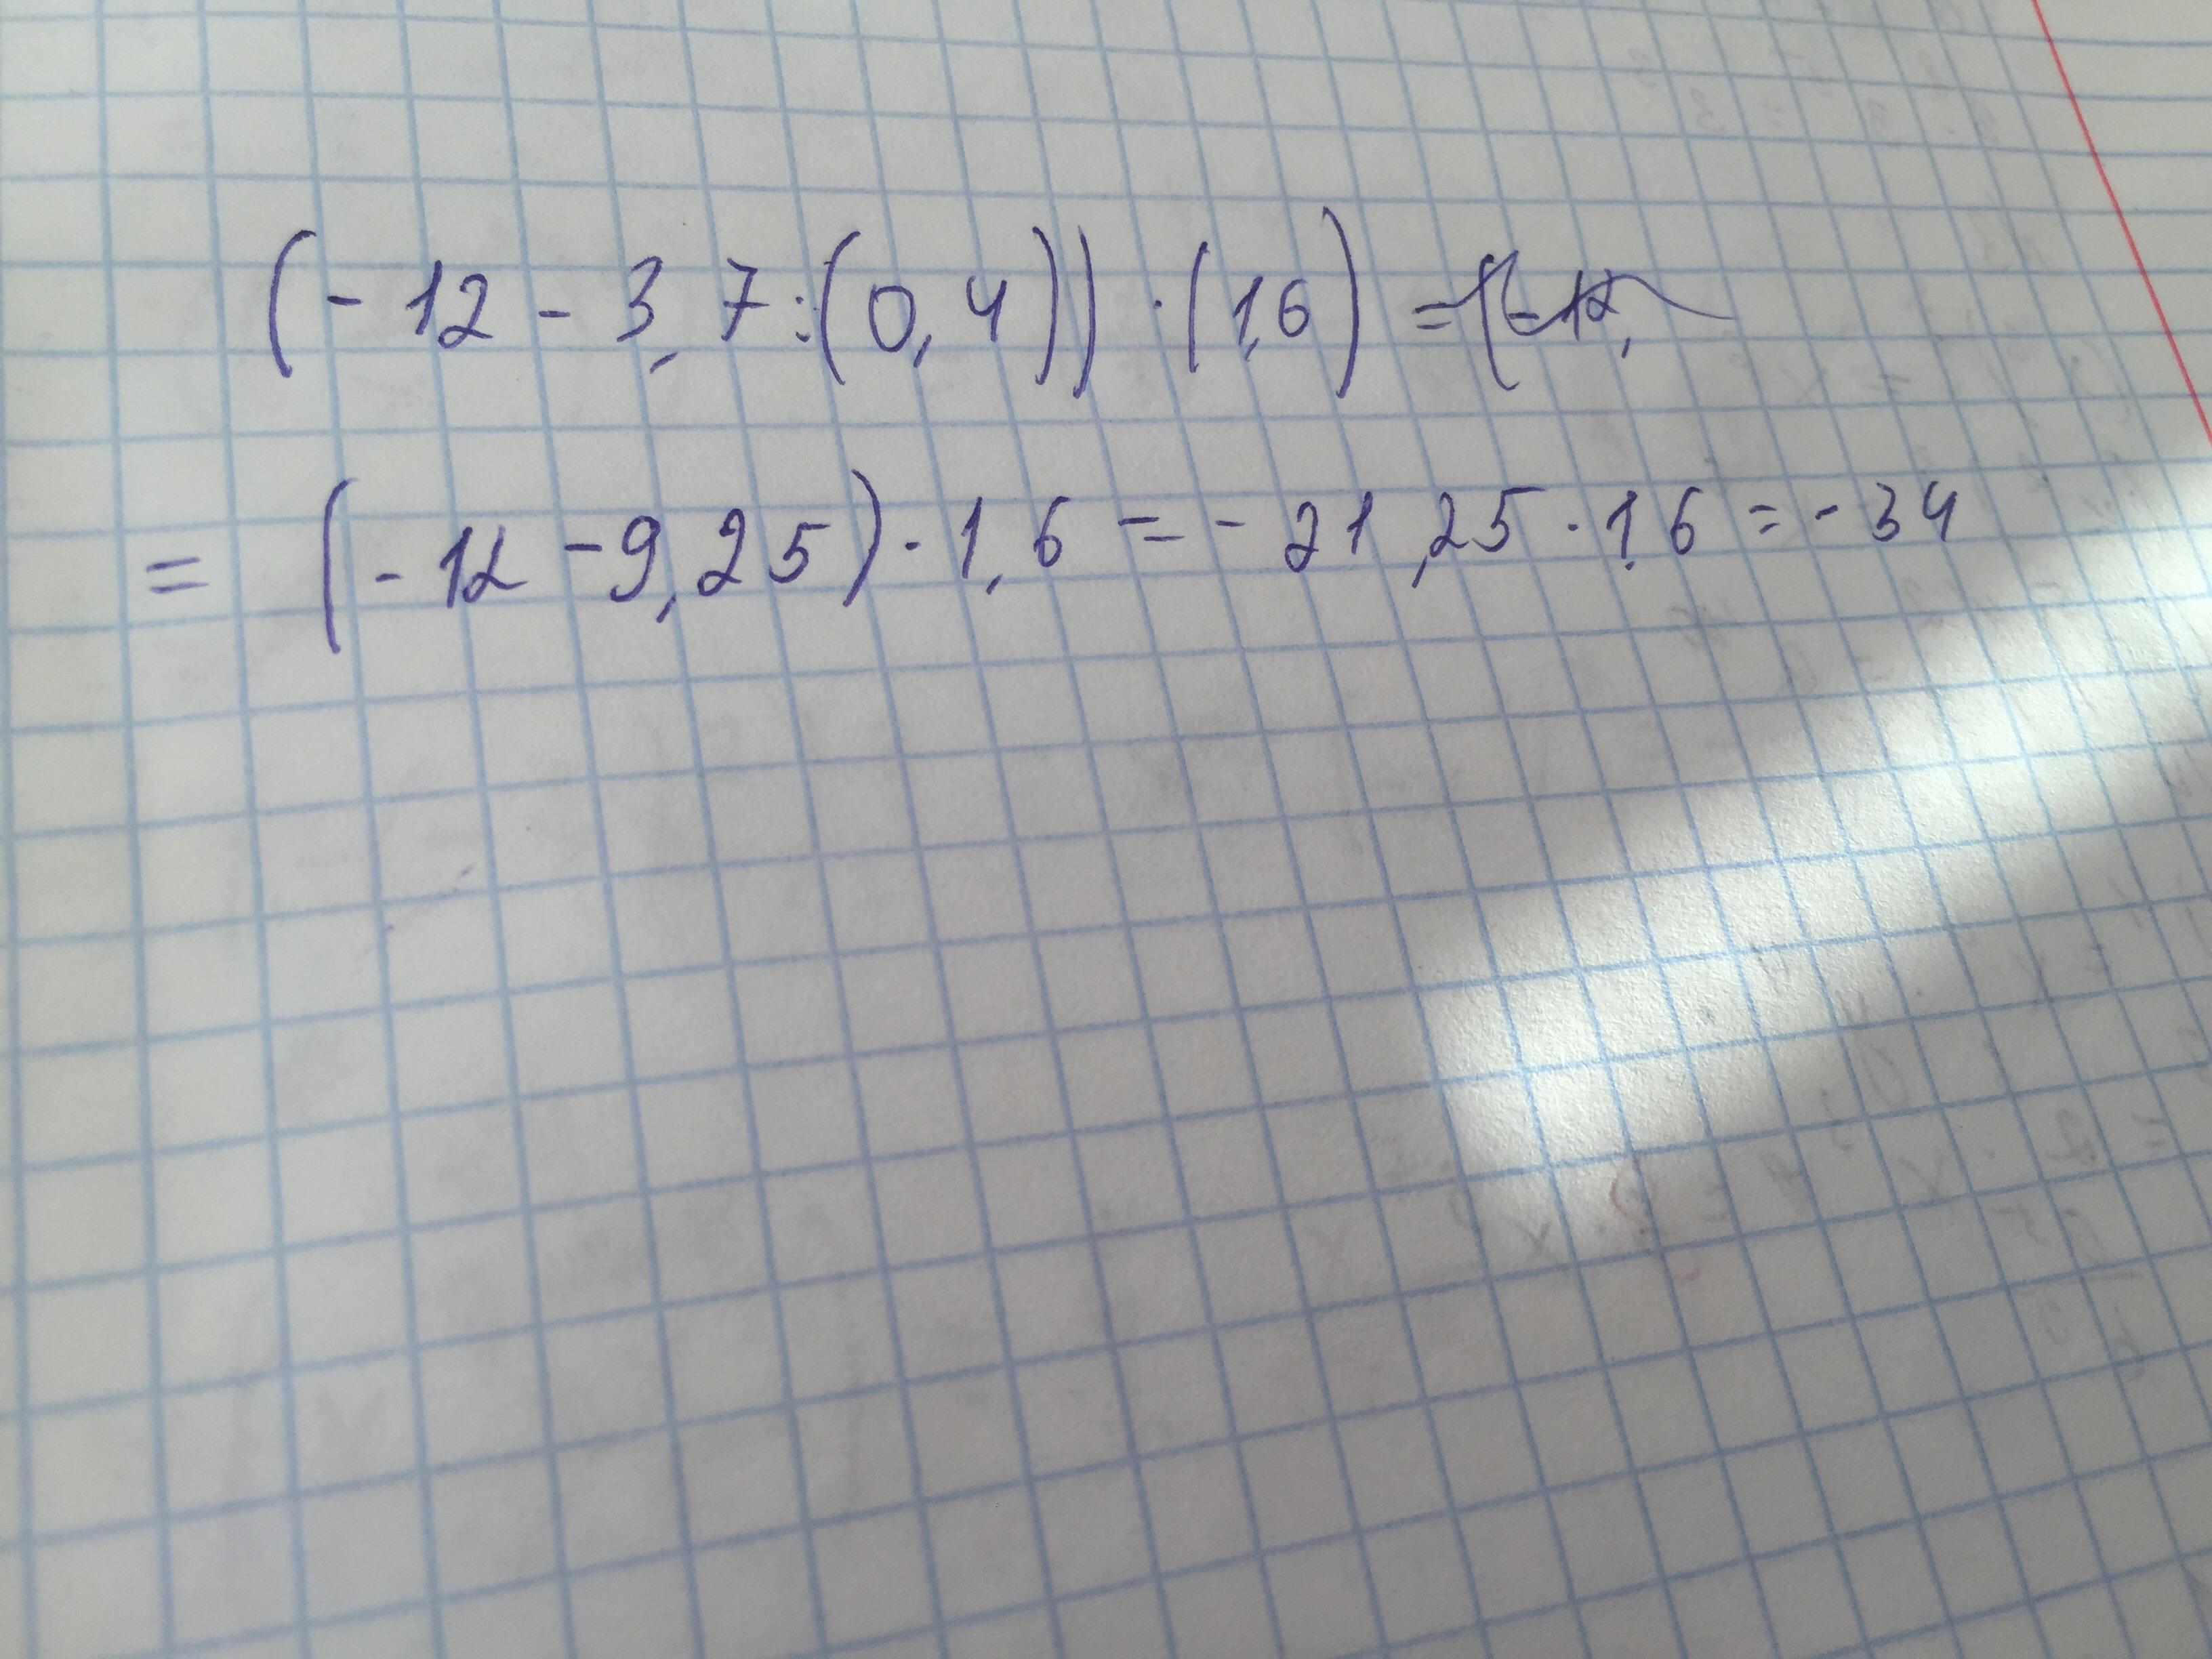 (-12-3,7:(0,4))·(1,6)=
=(-12-9,25)·1,6=-21,25·1,6=-34